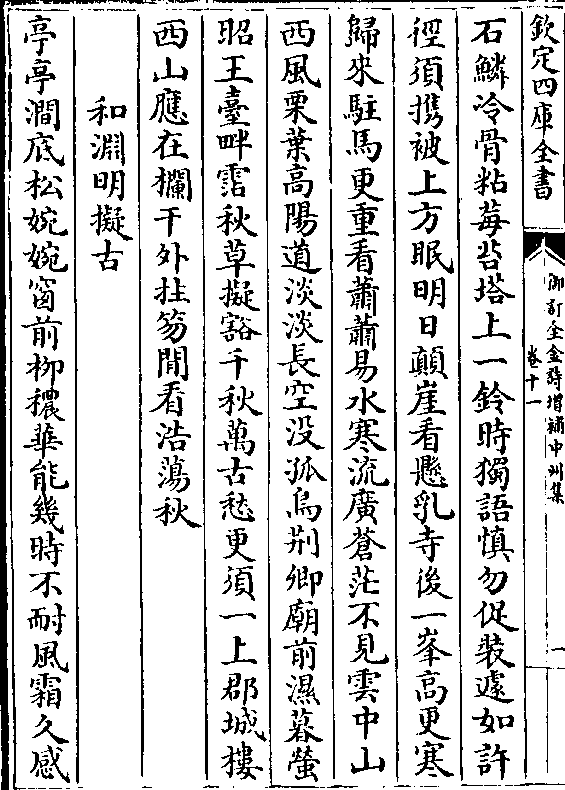 欽定四庫全書
御訂全金詩增補中州集
卷十一
一
石鱗冷骨粘莓苔塔上一鈴時獨語慎勿促裝遽如許
徑須攜被上方眠明日顛崖看懸乳寺後一峯高更寒
歸來駐馬更重看蕭蕭易水寒流廣蒼茫不見雲中山
西風栗葉高陽道淡淡長空没孤鳥荆卿廟前濕暮螢
昭王臺畔霑秋草擬豁千秋萬古愁更須一上郡城樓
西山應在欄干外拄笏閒看浩蕩秋
和淵明擬古
亭亭澗底松婉婉窗前栁穠華能幾時不耐風霜久感